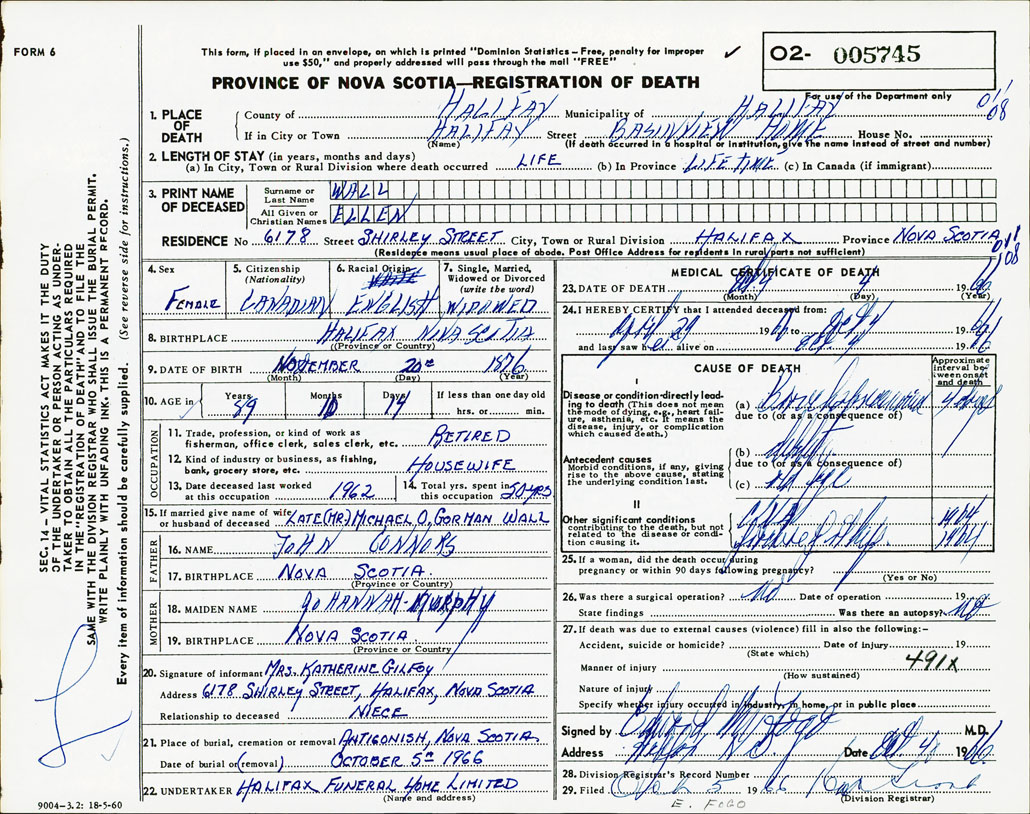 FORM 6
This form, if placed in an envelope, on which is printed "Dominion Statistics – Free, penalty for improper
use $50," and properly addressed will pass through the mail "FREE"
✓
O2- 005745
PROVINCE OF NOVA SCOTIA—REGISTRATION OF DEATH
For use of the Department only
1. PLACE OF DEATH
County of HALIFAX Municipality of HALIFAX
If in City or Town HALIFAX Street BASINVIEW HOME House No.
(Name) (If death occurred in a hospital or institution, give the name instead of street and number)
2. LENGTH OF STAY (in years, months and days)
(a) In City, Town or Rural Division where death occurred LIFE (b) In Province LIFE TIME (c) In Canada (if immigrant)
3. PRINT NAME OF DECEASED
Surname or Last Name WALL
All Given or Christian Names ELLEN
RESIDENCE No 6178 Street SHIRLEY STREET City, Town or Rural Division HALIFAX Province NOVA SCOTIA
(Residence means usual place of abode. Post Office Address for residents in rural parts not sufficient)
4. Sex FEMALE
5. Citizenship (Nationality) CANADIAN
6. Racial Origin ENGLISH
7. Single, Married, Widowed or Divorced (write the word) WIDOWED
8. BIRTHPLACE HALIFAX NOVA SCOTIA
(Province or Country)
9. DATE OF BIRTH NOVEMBER 20 1876
(Month) (Day) (Year)
10. AGE in Years 89 Months 10 Days 14 If less than one day old
hrs. or min.
OCCUPATION
11. Trade, profession, or kind of work as
fisherman, office clerk, sales clerk, etc. RETIRED
12. Kind of industry or business, as fishing,
bank, grocery store, etc. HOUSEWIFE
13. Date deceased last worked
at this occupation 1962
14. Total yrs. spent in
this occupation 50 YRS
15. If married give name of wife
or husband of deceased LATE (MR) MICHAEL O, GORMAN WALL
FATHER
16. NAME JOHN CONNORS
17. BIRTHPLACE NOVA SCOTIA.
(Province or Country)
MOTHER
18. MAIDEN NAME JOHANNAH MURPHY
19. BIRTHPLACE NOVA SCOTIA.
(Province or Country)
20. Signature of informant MRS. KATHERINE GILFOY
Address 6178 SHIRLEY STREET, HALIFAX, NOVA SCOTIA
Relationship to deceased NIECE
21. Place of burial, cremation or removal ANTIGONISH, NOVA SCOTIA.
Date of burial or (removal) OCTOBER 5 1966
22. UNDERTAKER HALIFAX FUNERAL HOME LIMITED
(Name and address)
9004—3.2: 18-5-60
MEDICAL CERTIFICATE OF DEATH
23. DATE OF DEATH Oct 4 1966
(Month) (Day) (Year)
24. I HEREBY CERTIFY that I attended deceased from:
April 29 19 to Oct 4 1966
and last saw her alive on Oct 4 1966
CAUSE OF DEATH
Approximate interval between onset and death
I
Disease or condition directly leading to death (This does not mean the mode of dying, e.g., heart failure, asthenia, etc. It means the disease, injury, or complication which caused death.)
(a) Bronchopneumonia 4 days
due to (or as a consequence of)
Antecedent causes
Morbid conditions, if any, giving rise to the above cause, stating the underlying condition last.
(b)
due to (or as a consequence of)
(c) old age
II
Other significant conditions
contributing to the death, but not related to the disease or condition causing it.
1964
1964
25. If a woman, did the death occur during
pregnancy or within 90 days following pregnancy?
(Yes or No)
26. Was there a surgical operation? no Date of operation 19
State findings Was there an autopsy? no
27. If death was due to external causes (violence) fill in also the following:–
Accident, suicide or homicide? Date of injury 19
(State which)
491x
Manner of injury
(How sustained)
Nature of injury
Specify whether injury occurred in industry, in home, or in public place
Signed by M.D.
Address Halifax N.S. Date Oct 4 1966.
28. Division Registrar's Record Number
29. Filed Oct 5 1966
(Division Registrar)
E. FOGO
SEC. 14 – VITAL STATISTICS ACT MAKES IT THE DUTY
OF THE UNDERTAKER OR PERSON ACTING AS UNDER-
TAKER TO OBTAIN ALL THE PARTICULARS REQUIRED
IN THE "REGISTRATION OF DEATH" AND TO FILE THE
SAME WITH THE DIVISION REGISTRAR WHO SHALL ISSUE THE BURIAL PERMIT.
WRITE PLAINLY WITH UNFADING INK. THIS IS A PERMANENT RECORD.
Every item of information should be carefully supplied. (See reverse side for instructions.)